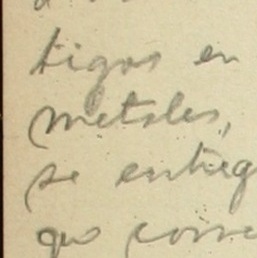 tigos en
metales,
se entreg
que corre